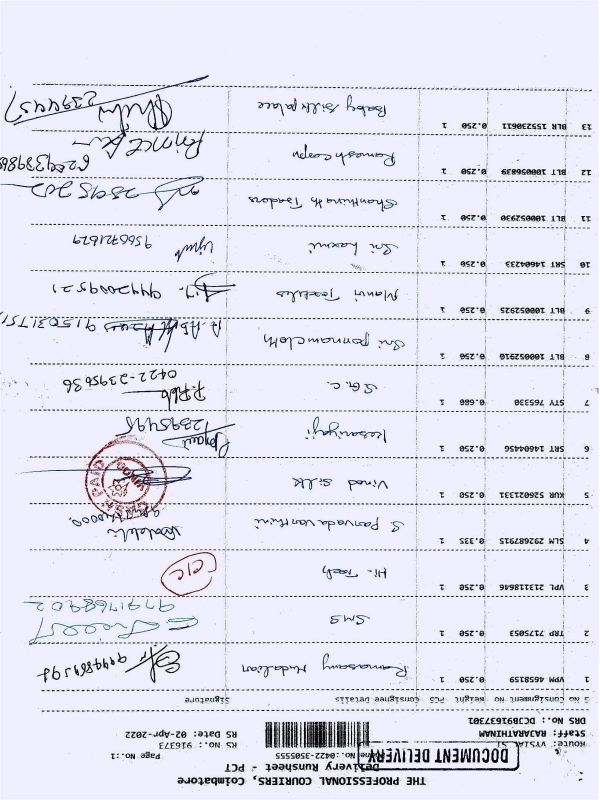 THE PROFESSIONAL COURIERS, Coimbatore
Delivery Runsheet - PCT
Page No.:1
DOCUMENT DELIVERY
Route: VYSIAL ST
Staff: RAJARATHINAM
DRS No.: DC10B1637301
RS No.: 916373
RS Date: 02-Apr-2022
S No Consignment No Weight PCS Consignee Details Signature
1 VPM 4658159 0.250 1 Ramasamy Mudaliar
2 TRP 7175053 0.250 1 SMS 9791768902
3 VPL 213118646 0.250 1 Hi-Tech CIC
4 SLM 292687915 0.335 1 S Parvadavarthini
5 KUR 526021331 0.250 1 Vinod Silk
CASH PAID
6 SRT 14604456 0.250 1 Kesariyaji 2395495
7 STY 765330 0.680 1 S.G.C. 0422-2395636
8 BLT 100052916 0.250 1 Sri ponnam cloth 915031751
9 BLT 100052925 0.250 1 Manvi Textiles 9442009521
10 SRT 14604233 0.250 1 Sri Laxmi 9566721829
11 BLT 100052930 0.250 1 Shanthinath Traders 2595202
12 BLT 100056839 0.250 1 Ramesh Corpn
13 BLR 155230611 0.250 1 Baby Silk palace 2394457